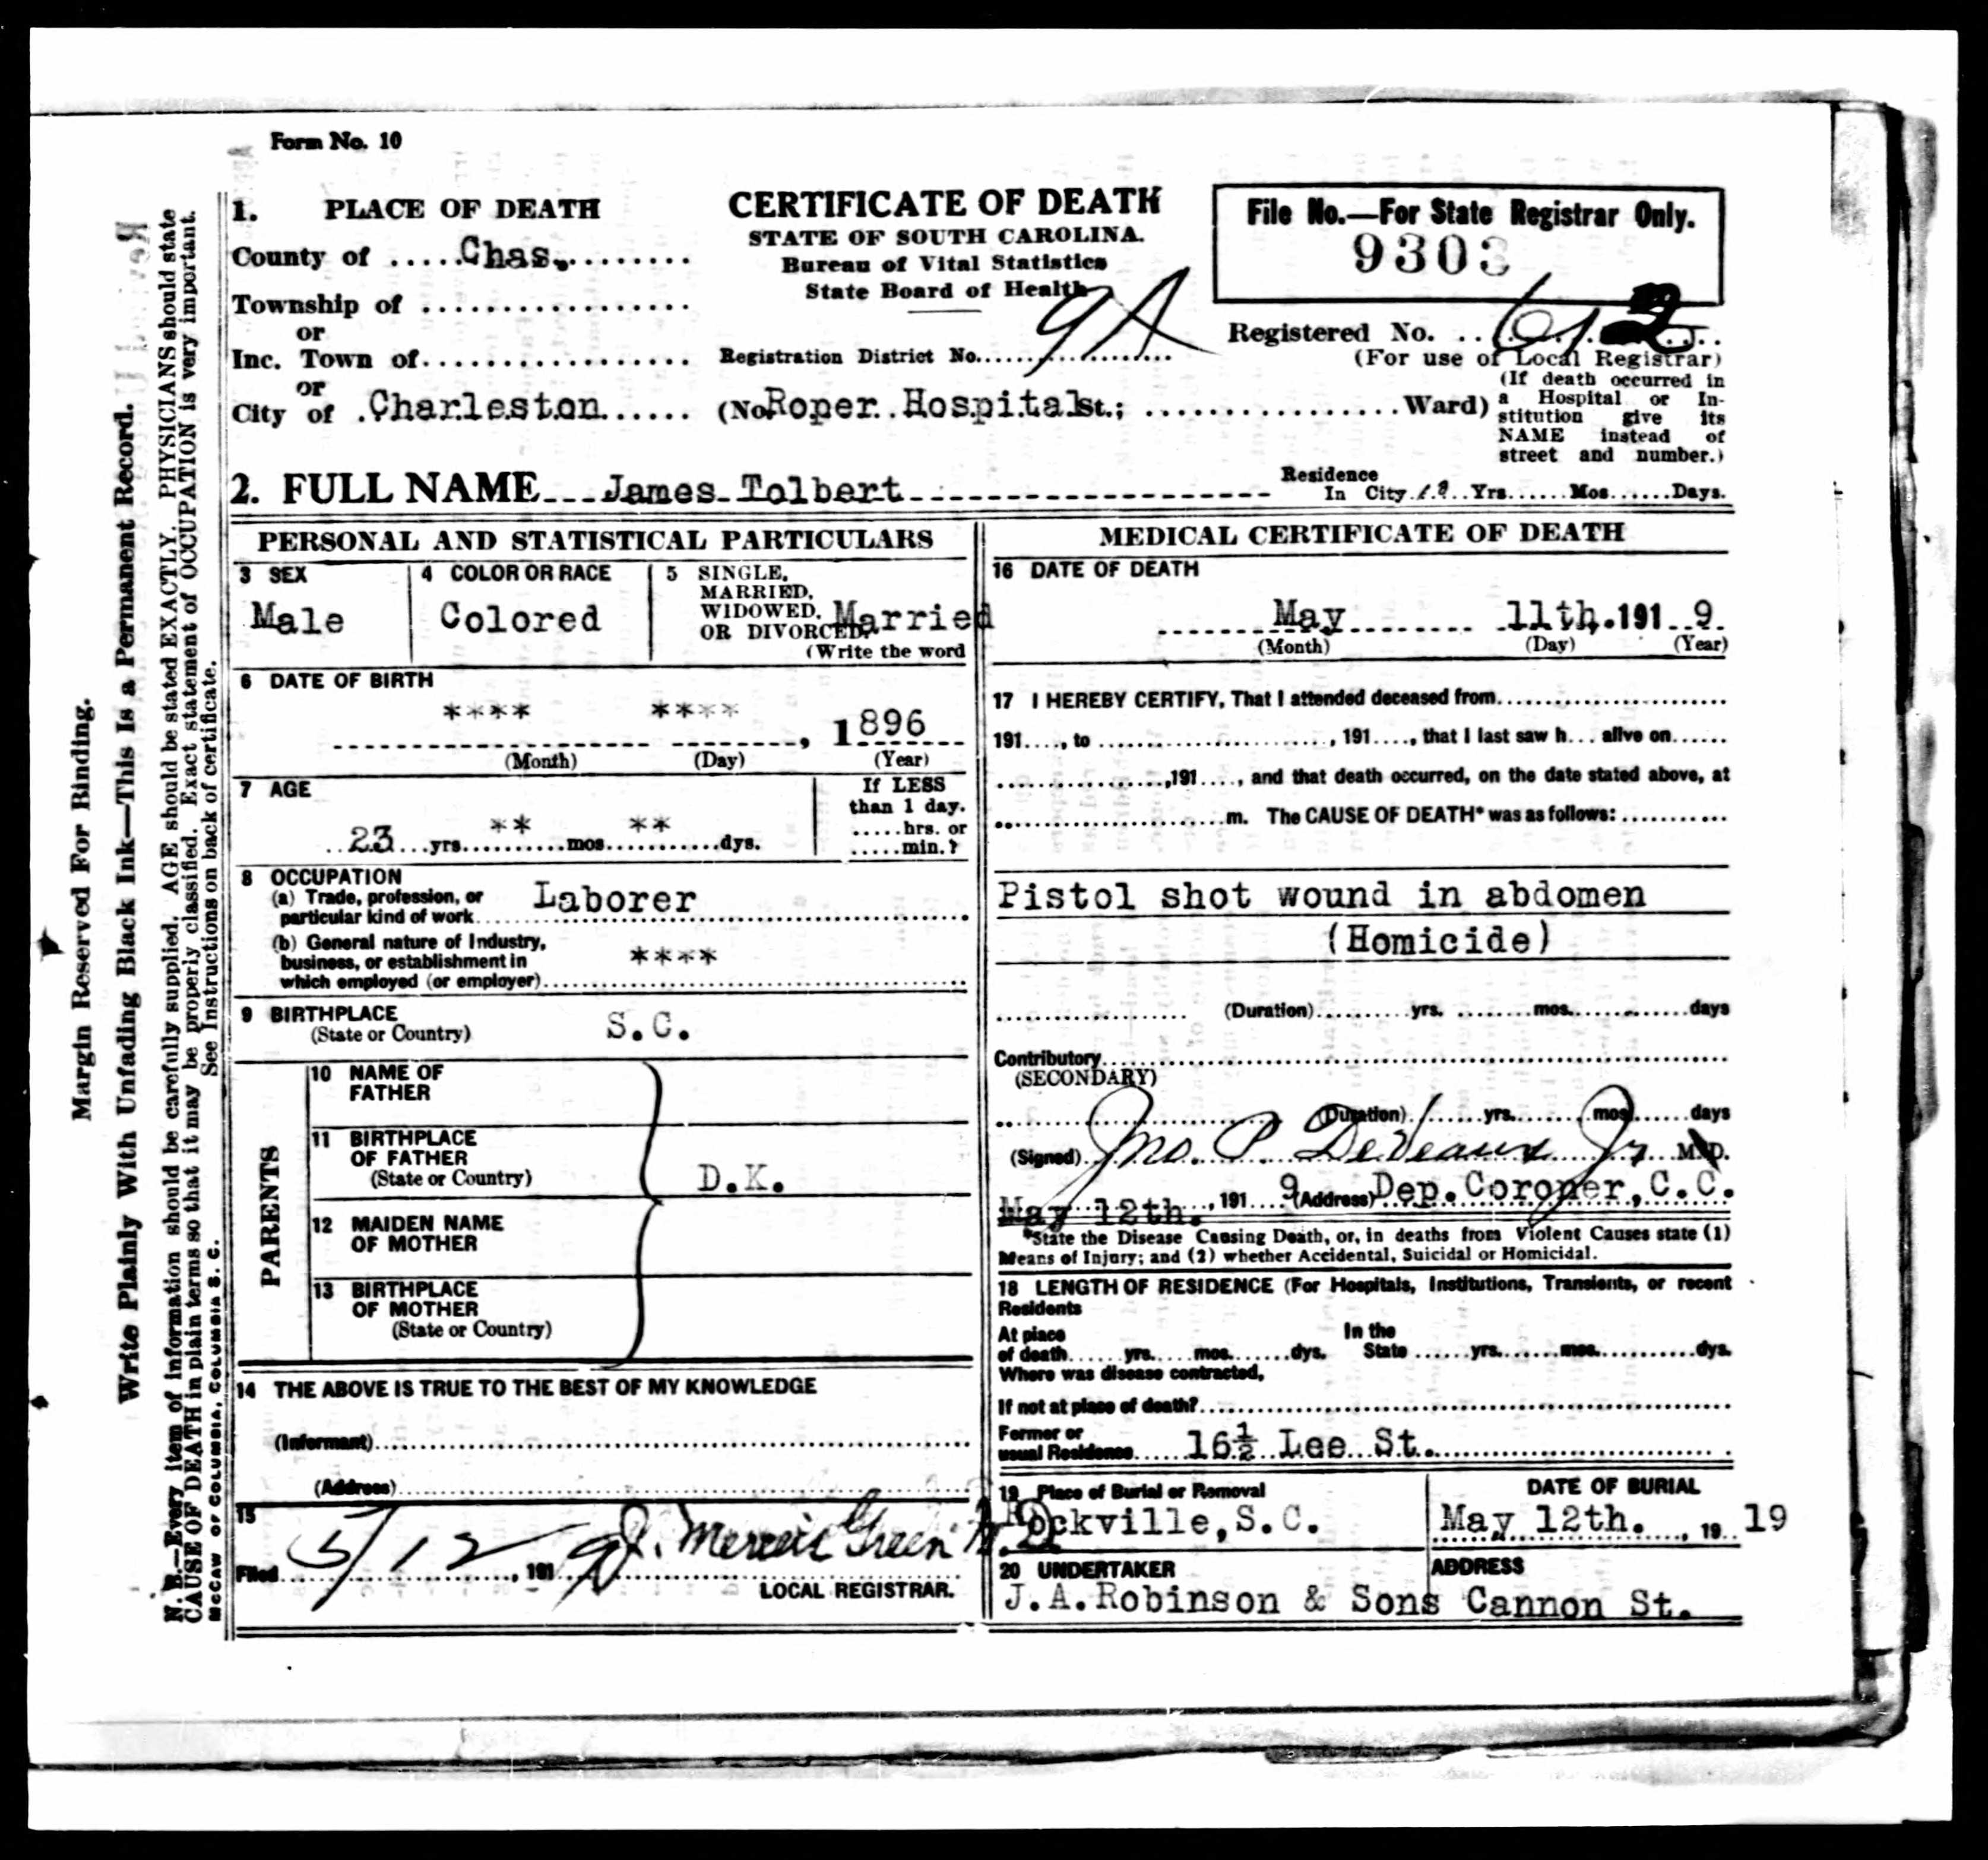 Form No. 10
1. PLACE OF DEATH
County of Chas.
Township of
or
Inc. Town of
or
City of Charleston
CERTIFICATE OF DEATH
STATE OF SOUTH CAROLINA.
Bureau of Vital Statistics
State Board of Health
Registration District No. 9A
(No. Roper Hospital St.; Ward)
File No.—For State Registrar Only.
9303
Registered No. 612
(For use of Local Registrar)
(If death occurred in
a Hospital or In-
stitution give its
NAME instead of
street and number.)
2. FULL NAME James Tolbert
Residence
In City Yrs. Mos. Days.
PERSONAL AND STATISTICAL PARTICULARS
3 SEX
Male
4 COLOR OR RACE
Colored
5 SINGLE,
MARRIED,
WIDOWED,
OR DIVORCED,
Married
(Write the word
6 DATE OF BIRTH
**** **** , 1896
(Month) (Day) (Year)
7 AGE
23 yrs. ** mos. ** dys.
If LESS
than 1 day.
hrs. or
min.?
8 OCCUPATION
(a) Trade, profession, or
particular kind of work
Laborer
(b) General nature of Industry,
business, or establishment in
which employed (or employer)
****
9 BIRTHPLACE
(State or Country)
S.C.
PARENTS
10 NAME OF
FATHER
11 BIRTHPLACE
OF FATHER
(State or Country)
D.K.
12 MAIDEN NAME
OF MOTHER
13 BIRTHPLACE
OF MOTHER
(State or Country)
14 THE ABOVE IS TRUE TO THE BEST OF MY KNOWLEDGE
(Informant)
(Address)
15
Filed 5/12, 1919 J. Mercier Green M.D.
LOCAL REGISTRAR.
MEDICAL CERTIFICATE OF DEATH
16 DATE OF DEATH
May 11th. 1919
(Month) (Day) (Year)
17 I HEREBY CERTIFY, That I attended deceased from
191...., to , 191...., that I last saw h... alive on
,191...., and that death occurred, on the date stated above, at
m. The CAUSE OF DEATH* was as follows:
Pistol shot wound in abdomen
(Homicide)
(Duration) yrs. mos. days
Contributory
(SECONDARY)
(Duration) yrs. mos. days
(Signed) Jno. P. DeVeaux Jr M.D.
May 12th., 1919 (Address) Dep. Coroner, C.C.
*State the Disease Causing Death, or, in deaths from Violent Causes state (1)
Means of Injury; and (2) whether Accidental, Suicidal or Homicidal.
18 LENGTH OF RESIDENCE (For Hospitals, Institutions, Transients, or recent
Residents
At place
of death yrs. mos. dys.
In the
State yrs. mos. dys.
Where was disease contracted,
If not at place of death?
Former or
usual Residence 16½ Lee St.
19 Place of Burial or Removal
Rockville, S.C.
DATE OF BURIAL
May 12th. , 19 19
20 UNDERTAKER
J.A. Robinson & Sons
ADDRESS
Cannon St.
Margin Reserved For Binding.
Write Plainly With Unfading Black Ink—This Is a Permanent Record.
N. B.—Every item of information should be carefully supplied. AGE should be stated EXACTLY. PHYSICIANS should state
CAUSE OF DEATH in plain terms so that it may be properly classified. Exact statement of OCCUPATION is very important.
See Instructions on back of certificate.
McCAW OF COLUMBIA, COLUMBIA S. C.